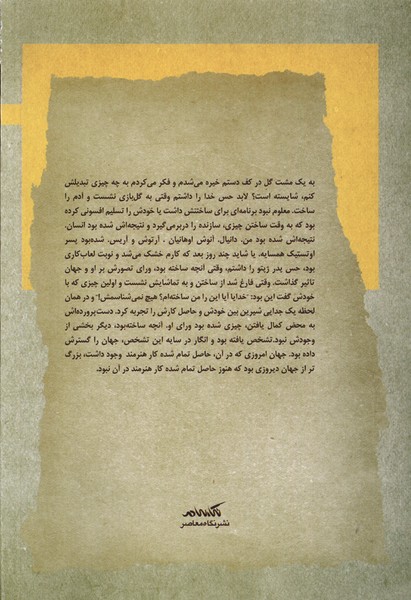 به یک مشت گل در کف دستم خیره می‌شدم و فکر می‌کردم به چه چیزی تبدیلش
کنم، شایسته است؟ لابد حس خدا را داشتم وقتی به گل‌بازی نشست و آدم را
ساخت. معلوم نبود برنامه‌ای برای ساختنش داشت یا خودش را تسلیم افسونی کرده
بود که به وقت ساختن چیزی، سازنده را دربرمی‌گیرد و نتیجه‌اش شده بود انسان.
نتیجه‌اش شده بود من، دانیال، آنوش اوهانیان ، آرتوش و آریس، شده‌بود پسر
اوتستیک همسایه. یا شاید چند روز بعد که کارم خشک می‌شد و نوبت لعاب‌کاری
بود، حس پدر ژپتو را داشتم، وقتی آنچه ساخته بود، ورای تصورش بر او و جهان
تاثیر گذاشت. وقتی فارغ شد از ساختن و به تماشایش نشست و اولین چیزی که با
خودش گفت این بود: "خدایا آیا این را من ساخته‌ام؟ هیچ نمی‌شناسمش!" و در همان
لحظه یک جدایی شیرین بین خودش و حاصل کارش را تجربه کرد. دست‌پرورده‌اش
به محض کمال یافتن، چیزی شده بود ورای او. آنچه ساخته‌بود، دیگر بخشی از
وجودش نبود.تشخص یافته بود و انگار در سایه این تشخص، جهان را گسترش
داده بود. جهان امروزی که در آن، حاصل تمام شده کار هنرمند وجود داشت، بزرگ
تر از جهان دیروزی بود که هنوز حاصل تمام شده کار هنرمند در آن نبود.
نشر نگاه معاصر